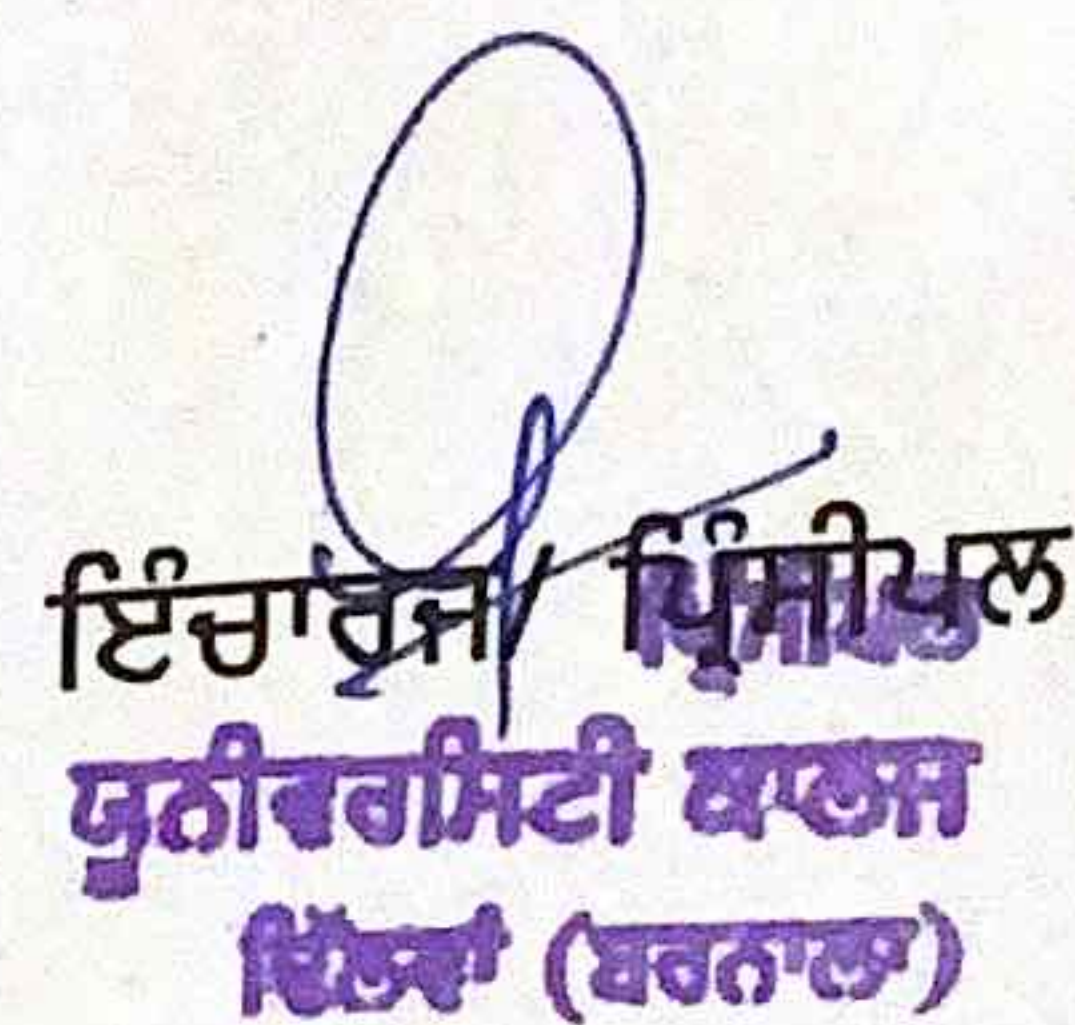 ਇੰਚਾਰਜ/ ਪ੍ਰਿੰਸੀਪਲ
ਯੂਨੀਵਰਸਿਟੀ ਕਾਲਜ
ਢਿੱਲਵਾਂ (ਬਰਨਾਲਾ)